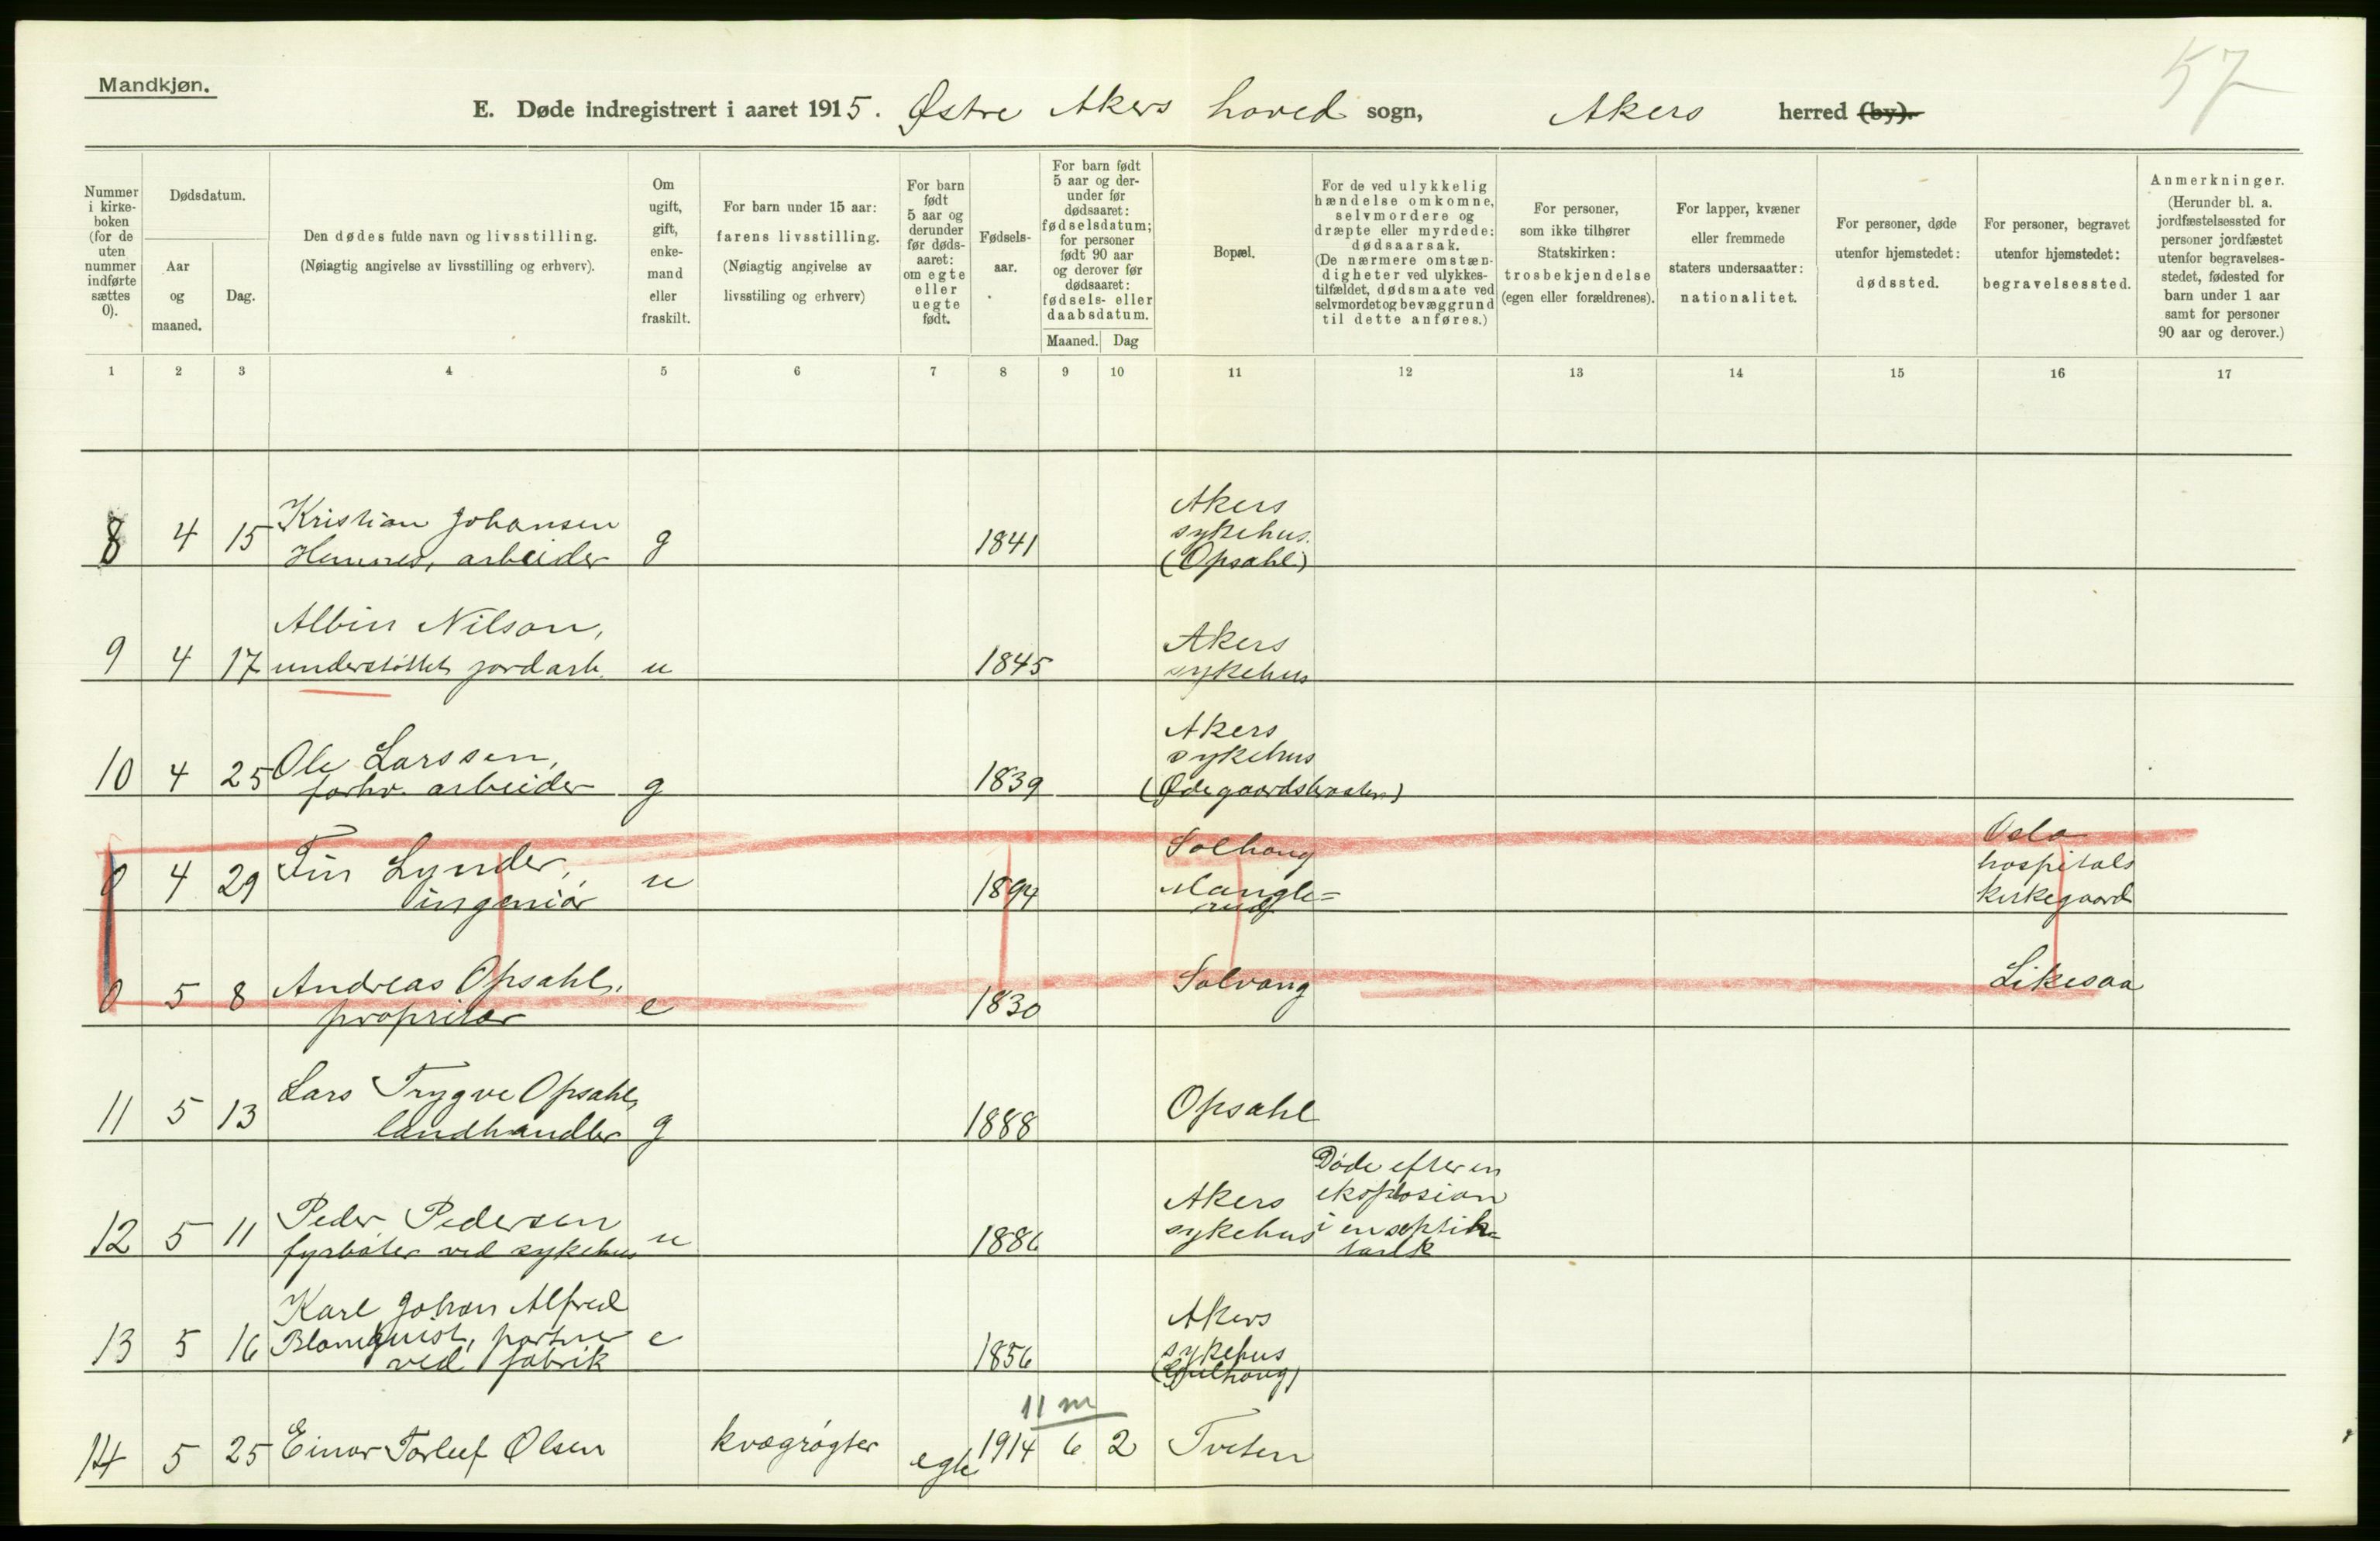 57
Mandkjøn.
E. Døde indregistrert i aaret 1915. Østre Akers hoved sogn, Akers herred (by).
Nummer i kirkeboken (for de uten nummer indførte sættes 0).
Dødsdatum.
Aar og maaned.
Dag.
Den dødes fulde navn og livsstilling.
(Nøiagtig angivelse av livsstilling og erhverv).
Om ugift, gift, enkemand eller fraskilt.
For barn under 15 aar: farens livsstilling.
(Nøiagtig angivelse av livsstiling og erhverv)
For barn født 5 aar og derunder før dødsaaret: om egte eller uegte født.
Fødselsaar.
For barn født 5 aar og derunder før dødsaaret: fødselsdatum; for personer født 90 aar og derover før dødsaaret: fødsels- eller daabsdatum.
Maaned. Dag
Bopæl.
For de ved ulykkelig hændelse omkomne, selvmordere og dræpte eller myrdede: dødsaarsak.
(De nærmere omstændigheter ved ulykkestilfældet, dødsmaate ved selvmordet og bevæggrund til dette anføres.)
For personer, som ikke tilhører Statskirken: trosbekjendelse (egen eller forældrenes).
For lapper, kvæner eller fremmede staters undersaatter: nationalitet.
For personer, døde utenfor hjemstedet: dødssted.
For personer, begravet utenfor hjemstedet: begravelsessted.
Anmerkninger.
(Herunder bl. a. jordfæstelsessted for personer jordfæstet utenfor begravelsesstedet, fødested for barn under 1 aar samt for personer 90 aar og derover.)
1 2 3 4 5 6 7 8 9 10 11 12 13 14 15 16 17
8 4 15 Kristian Johansen
arbeider g 1841 Akers
sykehus.
(Opsahl)
9 4 17 Albin Nilson,
understøttet jordarb. u 1845 Akers
sykehus
10 4 25 Ole Larssen,
forhv. arbeider g 1839 Akers
sykehus
0 4 29 Fin Lynder,
ingeniør u 1894 Solhaug
Mangle=
rud
Oslo
hospitals
kirkegaard
0 5 8 Andreas Opsahl,
propritær e 1830 Solvang Likesaa
11 5 13 Lars Trygve Opsahl,
landhandler g 1888 Opsahl
12 5 11 Peder Pedersen
fyrbøter ved sykehus u 1886 Akers
sykehus
Døde efter en
eksplosion
i en septik=
tank
13 5 16 Karl Johan Alfred
Blomquist, portner
ved fabrik e 1856 Akers
sykehus
11 m
14 5 25 Einar Torleif Olsen kvægrøgter egte 1914 6 2 Tveten